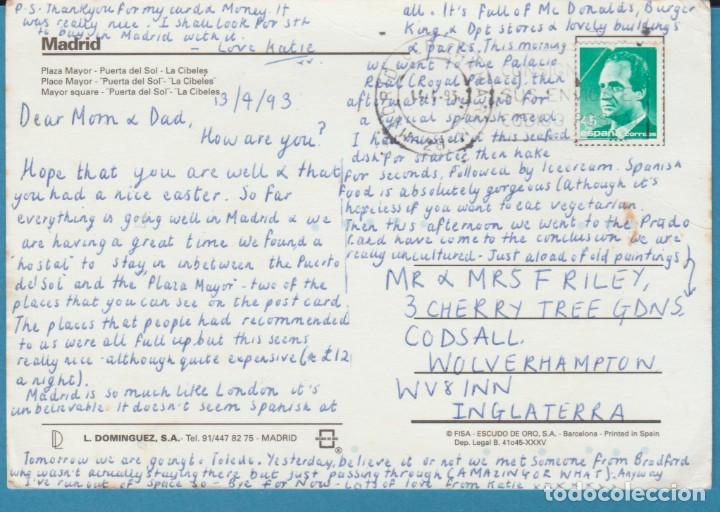 P.S. Thankyou for my card & Money. It
was really nice. I shall look for sth
to buy in Madrid with it.
- Love Katie
Madrid
Plaza Mayor - Puerta del Sol - La Cibeles
Place Mayor - "Puerta del Sol" - "La Cibeles"
Mayor square - "Puerta del Sol" - "La Cibeles"
13/4/93
Dear Mom & Dad,
How are you?
Hope that you are well & that
you had a nice easter. So far
everything is going well in Madrid & we
are having a great time we found a
'hostal' to stay in inbetween the Puerto
del Sol and the "Plaza Mayor" - two of the
places that you can see on the post card.
The places that people had recommended
to us were all full up but this seems
really nice - although quite expensive (≈ £12
a night).
Madrid is so much like London it's
unbeleivable it doesn't seem Spanish at
all. It's full of Mc Donalds, Burger
King & Dpt stores & lovely buildings
& parks. This morning
we went to the Palacio
Real (Royal Palace) then
afterwards we went for
a typical spanish meal
I had this seafood
dish for starter then hake
for seconds, followed by Icecream. Spanish
food is absolutely gorgeous (although it's
hopeless if you want to eat vegetarian.
Then this afternoon we went to the Prado
and have come to the conclusion we are
really uncultured - Just a load of old paintings)
45
españa correos
MR & MRS F RILEY,
3 CHERRY TREE GDNS.
CODSALL.
WOLVERHAMPTON
WV8 1NN
INGLATERRA
L. DOMINGUEZ, S.A. - Tel. 91/447 82 75 - MADRID
®
© FISA - ESCUDO DE ORO, S.A. - Barcelona - Printed in Spain
Dep. Legal B. 41045-XXXV
Tomorrow we are going t. Toledo. Yesterday, believe it or not we met someone from Bradford
who wasn't actually staying there but just passing through (AMAZING OR WHAT). Anyway
I've run out of space so - Bye for Now - Lots of love from Katie xxx
todocoleccion